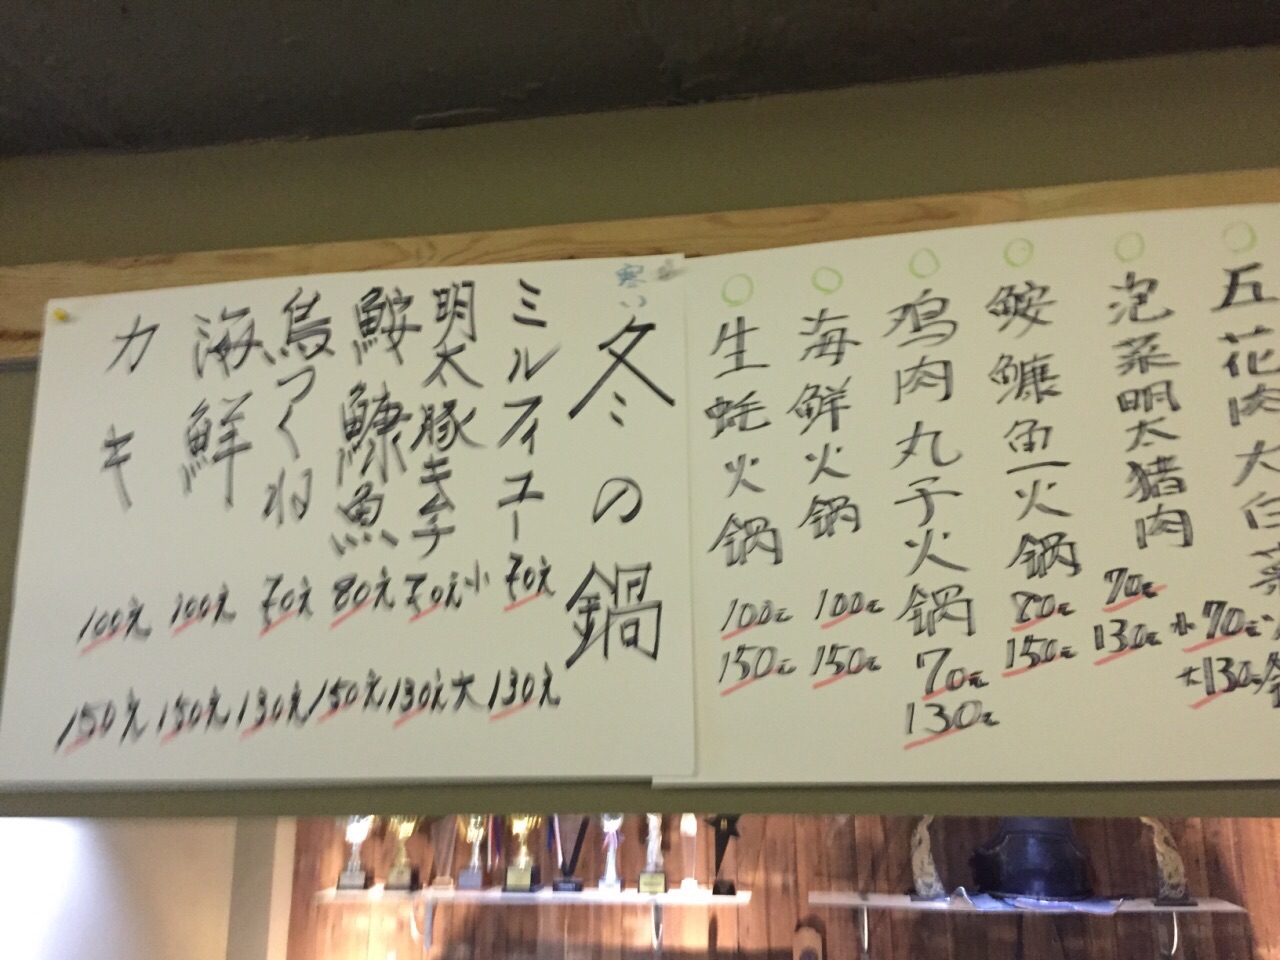 寒い
冬の鍋
ミルフィユー 70元 130元
明太豚キムチ 70元小 130元大
鮟鱇魚 80元 150元
鳥つくね 70元 130元
海鮮 100元 150元
カキ 100元 150元
五花肉大白菜 小70元 大130元
泡菜明太猪肉 70元 130元
鮟鱇魚火锅 80元 150元
鸡肉丸子火锅 70元 130元
海鲜火锅 100元 150元
生蚝火锅 100元 150元